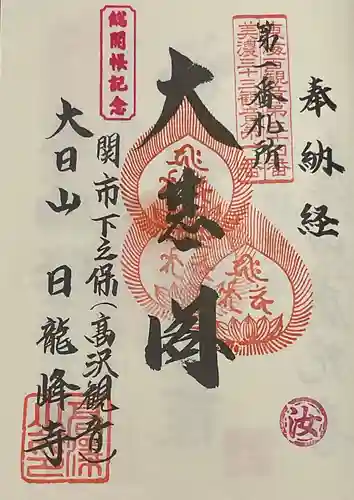 奉納経
第一番札所
美濃三十三観音
総開帳記念
大悲閣
関市下之保(高沢観音)
大日山 日龍峰寺
汝